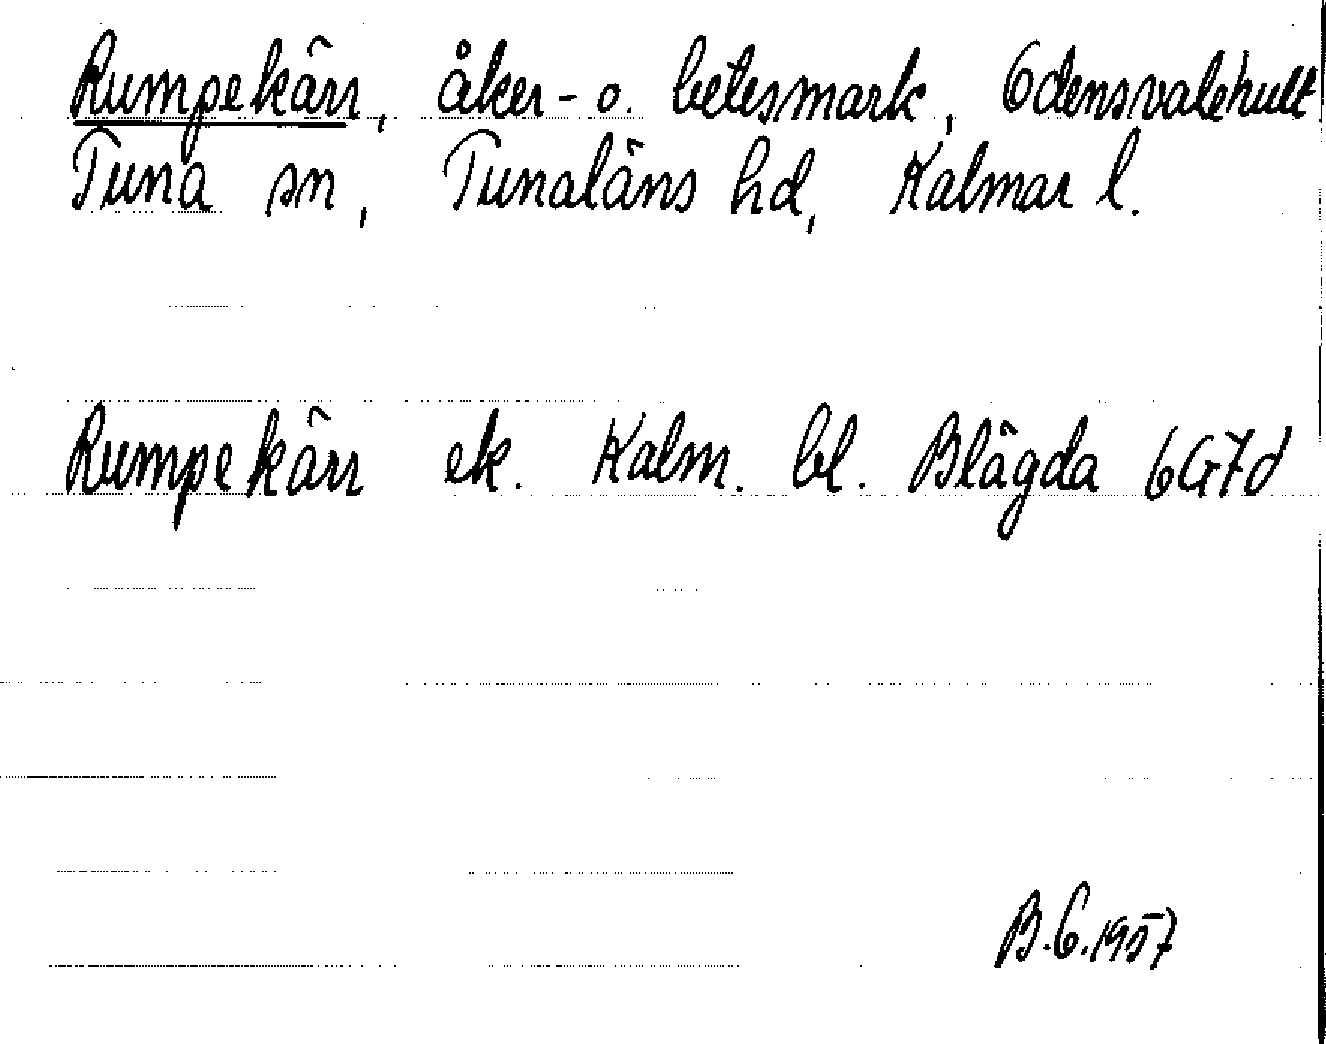 Rumpekärr, åker- o. betesmark, Odensvalehult
Tuna sn, Tunaläns hd, Kalmar l.
Rumpekärr ek. Kalm. bl. Blägda 6G7d
B.G. 1957